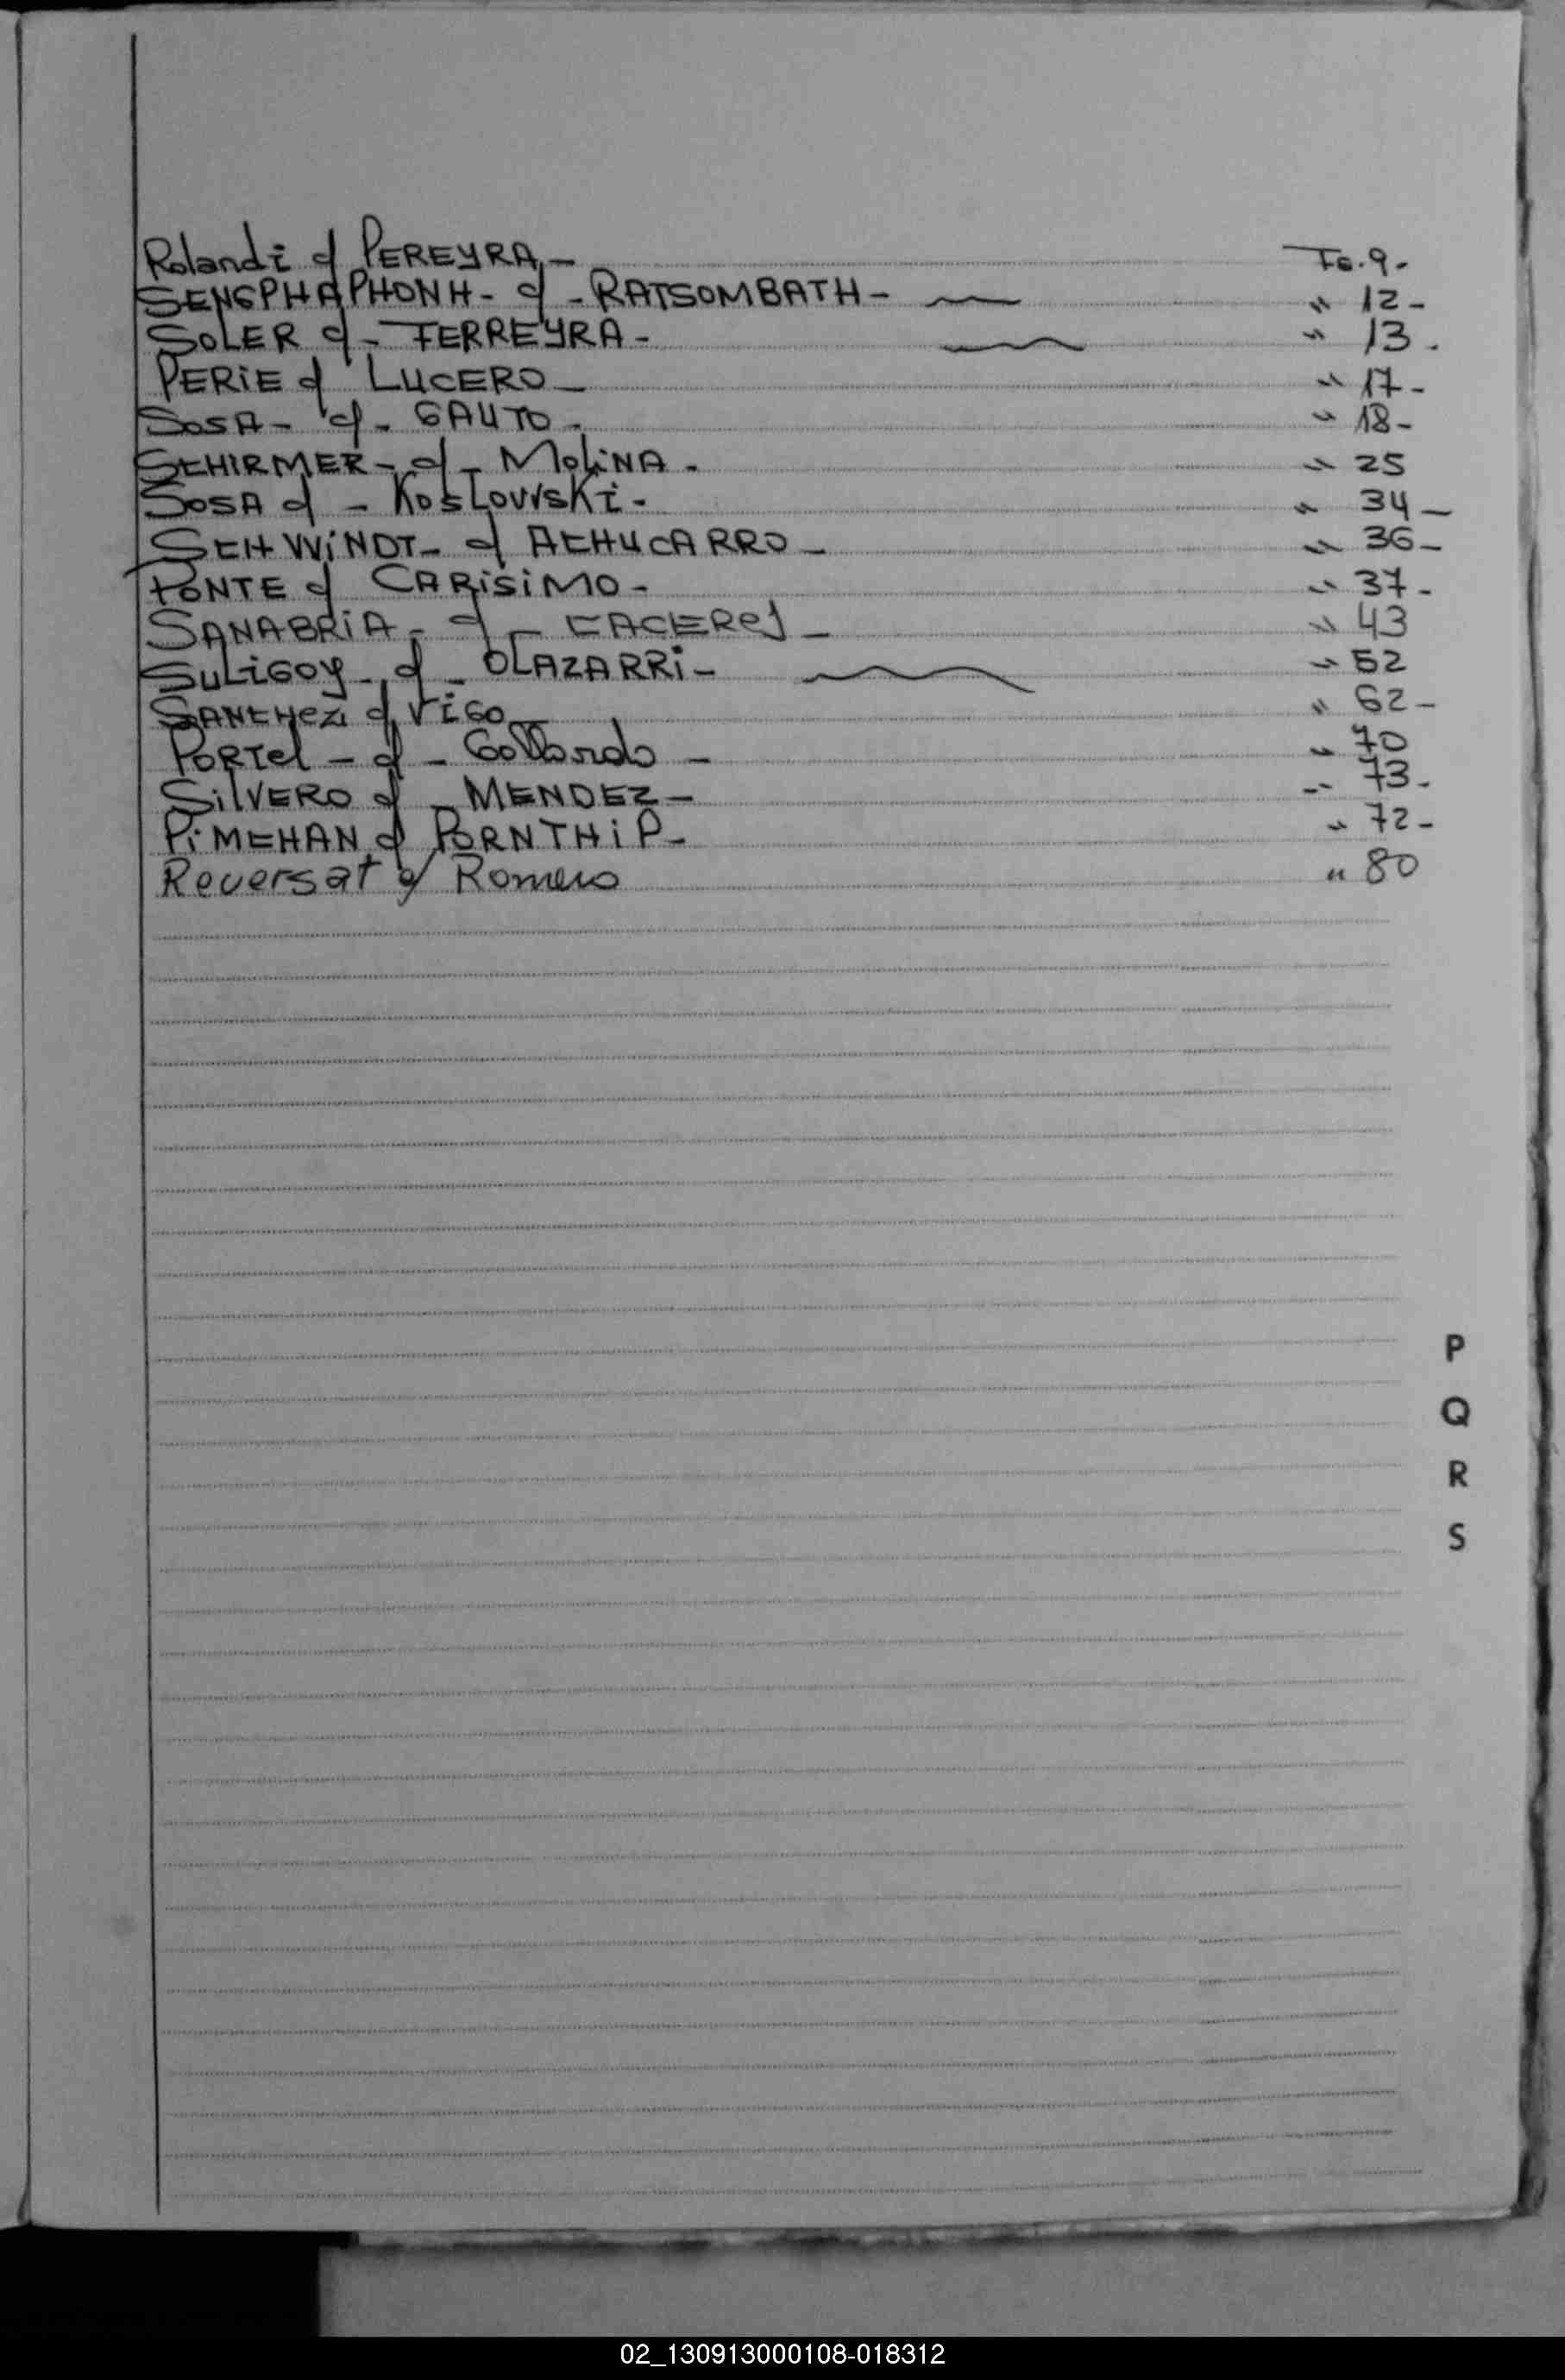 Rolandi c/ PEREYRA - Fo. 9.
SENGPHAPHONH - c/ - RATSOMBATH - " 12 -
SOLER c/ - FERREYRA - " 13 .
PERiE c/ LUCERO - " 17 -
SOSA - c/ - GAUTO - " 18 -
SCHIRMER - c/ - MOLiNA - " 25
SOSA c/ - KosLovvsKi - " 34 -
SCHWiNDT - c/ ACHUCARRO - " 36 -
PONTE c/ CARiSiMO - " 37 -
SANABRiA - c/ - CACERES - " 43
SULiGOY - c/ - OLAZARRi - " 52
SANCHEZ c/ ViGO " 62 -
PORTEL - c/ - Gallardo - " 70
SiLVERO c/ - MENDEZ - " 73 -
PiMCHAN c/ PORNTHiP - " 72 -
Reversat c/ Romero " 80
P
Q
R
S
02_130913000108-018312